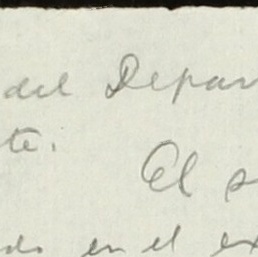 del Depar
te.
El s
do en el ex